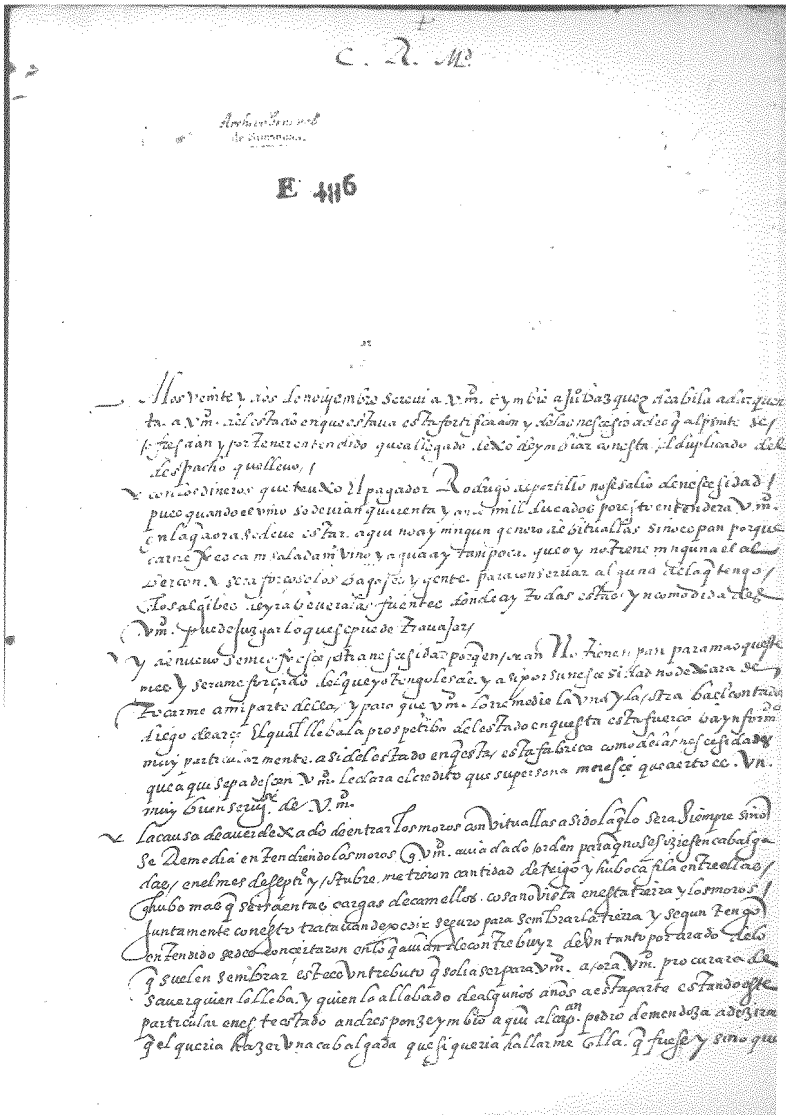 +
C. R. Md.
Archivo General
de Simancas
E 486
A los veinte y dos de noviembre screvi a V. m. e ymbie a Ju° bazquez de abila a dar quen
ta. a V. m. del estado en que estava esta fortificaçion y de las nescesidades q al psente se
 y por tener entendido que a llegado dexo de ymbiar con esta el duplicado del
despacho que llevo /
con los dineros que truxo El pagador Rodrigo de portillo no se salio de nescesidad /
pues quando el vino se devian quarenta y mill ducados por esto entendera V. m.
en la q aora se deve estar. aqui no ay ningun genero de bituallas sino es pan porque
carne fresca ni salada ni vino y agua ay tampoca que oy no tiene ninguna el al
 y sera forçoso los bagajes y gente para conservar alguna de la q tengo /
los algibes yr a bever a las fuentes donde ay todas estas yncomodidades
V. m. puede juzgar lo que se puede travajar /
y de nuevo se nos ofresce otra nescesidad por q en oran No tienen pan para mas queste
mes y serame forçado del que yo tengo les de y asi por su nescesidad no dexara de
tocarme a mi parte della / y para que V. m. lo remedie la una y la otra ba el contador
diego de arze El qual lleba la prospetiba del estado en questa esta fuerça ba ynformdo
muy particularmente. asi del estado en q esta esta fabrica como de las nescesidades
que aqui se padescen V. m. le dara el credito que su persona meresce que a
muy buen servi° de V. m.
la causa de aver dexado de entrar los moros con vituallas a sido la q lo sera siempre sino
se Remedia entendiendo los moros q V. m. avia dado orden para q no se hiziesen cabalga
das / en el mes de septre y otubre metieron cantidad de trigo y hubo cafila entre ellas /
q hubo mas q setesaentas cargas de camellos. cosa no vista en esta tierra y los moros /
juntamente con esto tratavan de pedir seguro para sembrar la tierra y segun tengo
entendido se desconçertaron en lo q avian de contrebuyr de un tanto por arado de lo
q suelen sembrar este es un trebuto q solia ser para V. m. aora V. m. procurara de
saver quien lo lleba. y quien lo a llebado de algunos años a esta parte estando este
particular en este estado andres ponze ymbio aqui al capan pedro de mendoza a dezirme
q el queria hazer una cabalgada que si queria hallarme en ella. q fuese y sino que